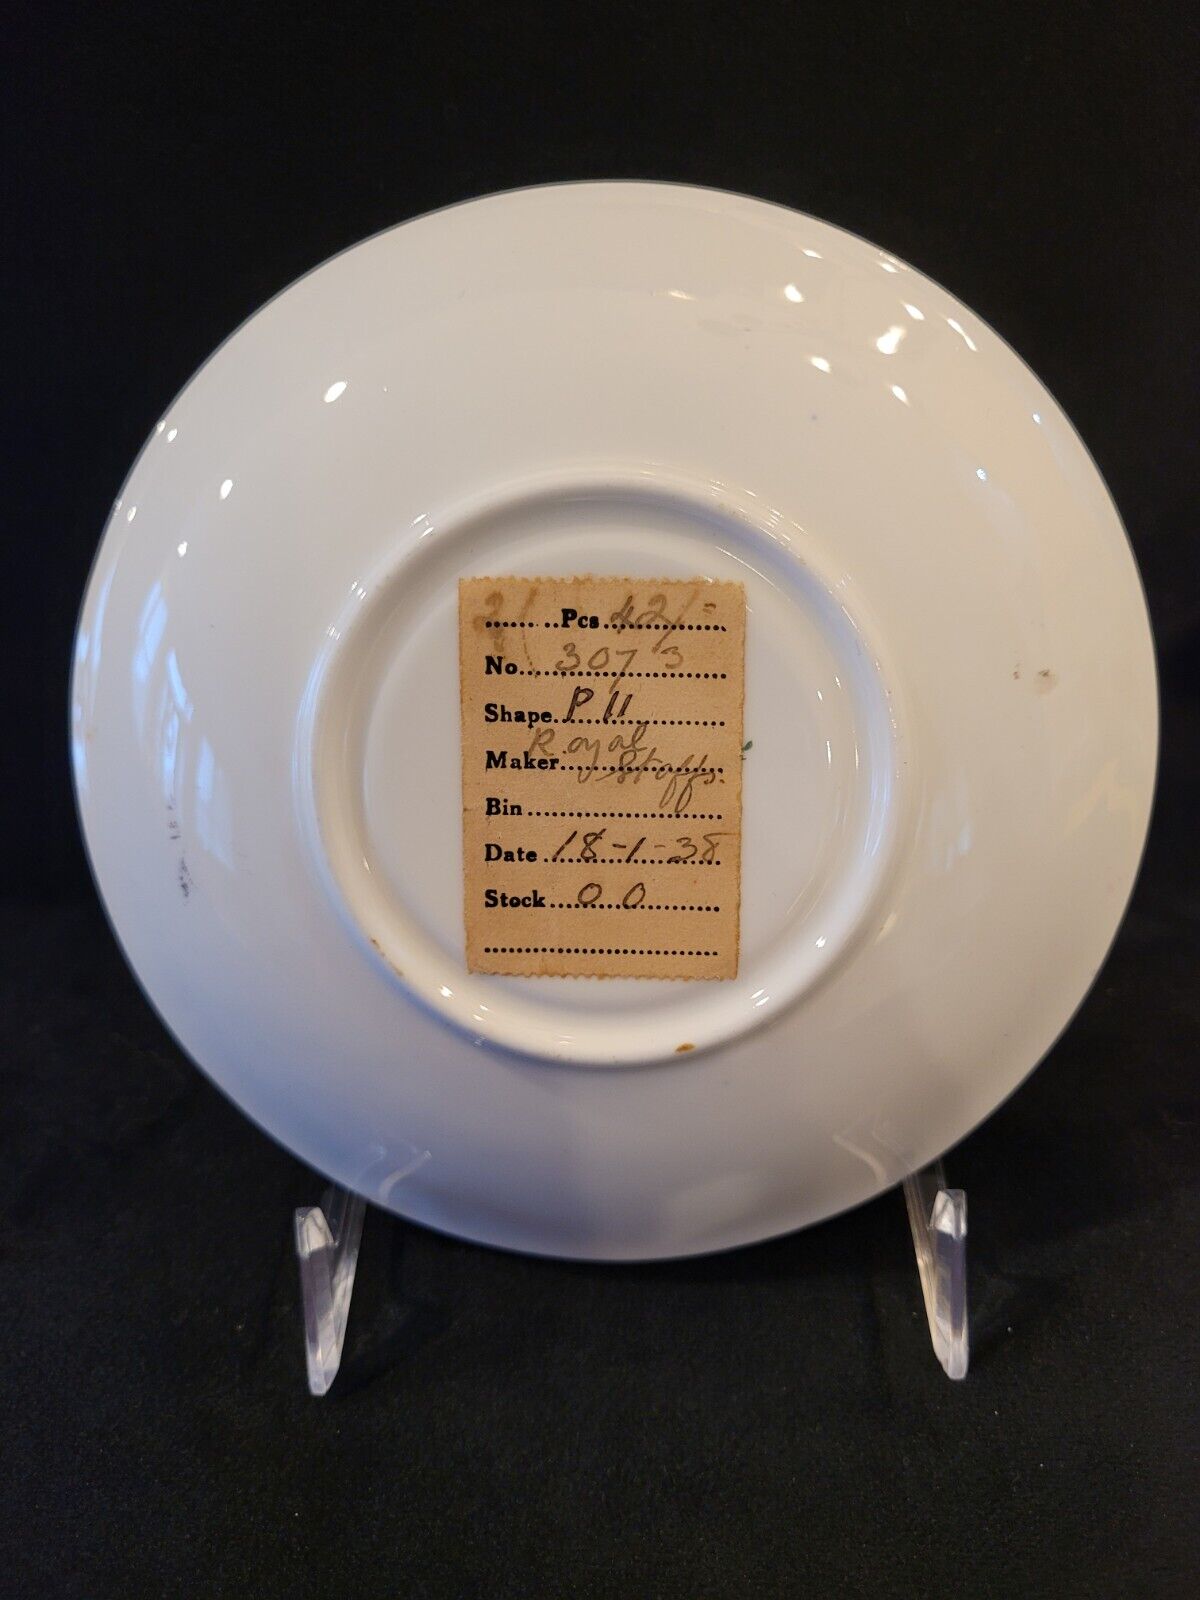 21 Pcs 42/=
No. 3073
Shape P 11
Royal
Maker Staffs.
Bin
Date 18-1-38
Stock 0 0